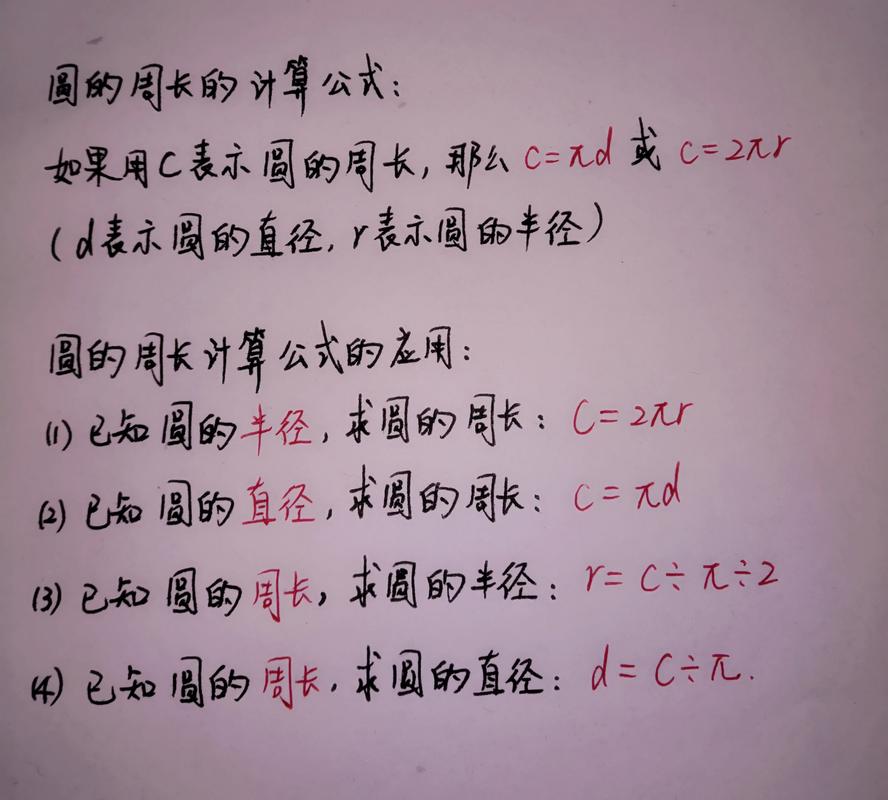 圆的周长的计算公式:
如果用C表示圆的周长,那么 C=πd 或 C=2πr
(d表示圆的直径,r表示圆的半径)
圆的周长计算公式的应用:
(1) 已知圆的半径,求圆的周长: C=2πr
(2) 已知圆的直径,求圆的周长: C=πd
(3) 已知圆的周长,求圆的半径: r=C÷π÷2
(4) 已知圆的周长,求圆的直径: d=C÷π.